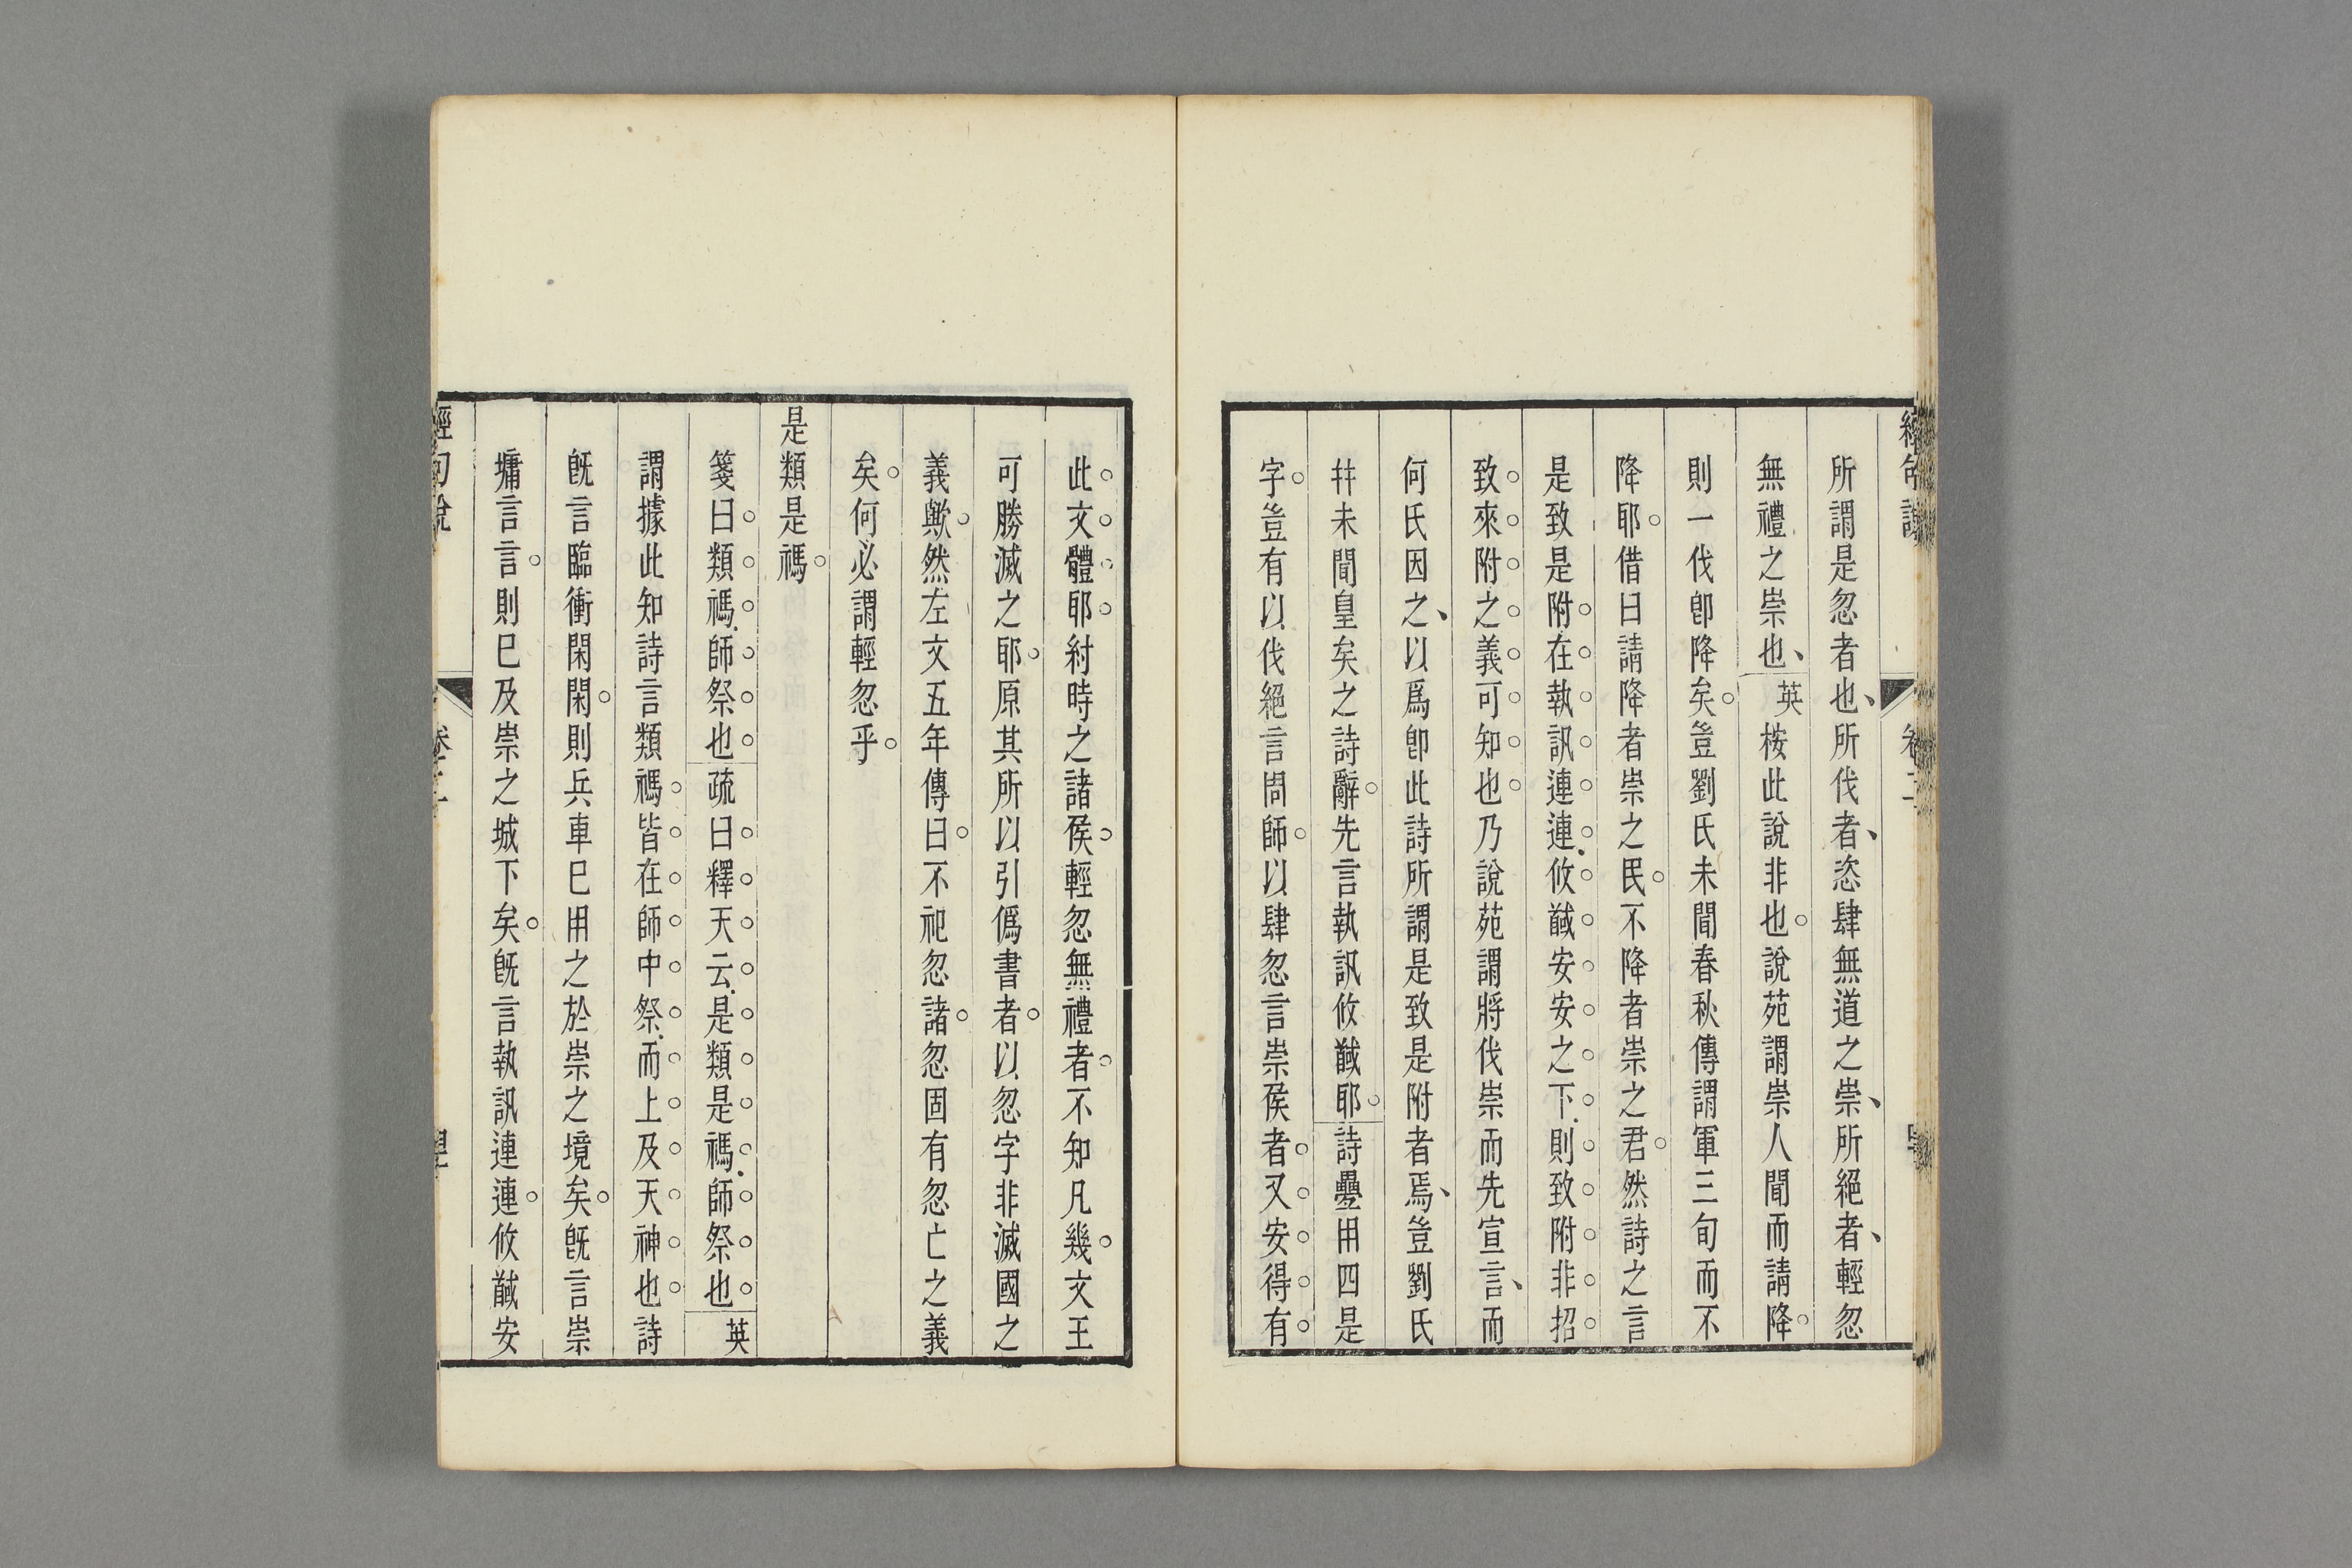 所謂是忽者也所伐者恣肆無道之崇所絕者輕忽
無禮之崇也英桉此說非也說苑謂崇人聞而請降
則一伐卽降矣豈劉氏未聞春秋傳謂軍三旬而不
降耶借曰請降者崇之民不降者崇之君然詩之言
是致是附在執訊連連攸馘安安之下則致附非招
致來附之義可知也乃說苑謂將伐崇而先宣言而
何氏因之以爲卽此詩所謂是致是附者焉豈劉氏
幷未聞皇矣之詩辭先言執訊攸馘耶詩疊用四是
字豈有以伐絕言問師以肆忽言崇侯者又安得有
此文體耶紂時之諸侯輕忽無禮者不知凡幾文王
可勝滅之耶原其所以引僞書者以忽字非滅國之
義歟然左文五年傳曰不祀忽諸忽固有忽亡之義
矣何必謂輕忽乎
是類是禡
箋曰類禡師祭也疏曰釋天云是類是禡師祭也英
謂據此知詩言類禡皆在師中祭而上及天神也詩
旣言臨衝閑閑則兵車巳用之於崇之境矣旣言崇
墉言言則巳及崇之城下矣旣言執訊連連攸馘安